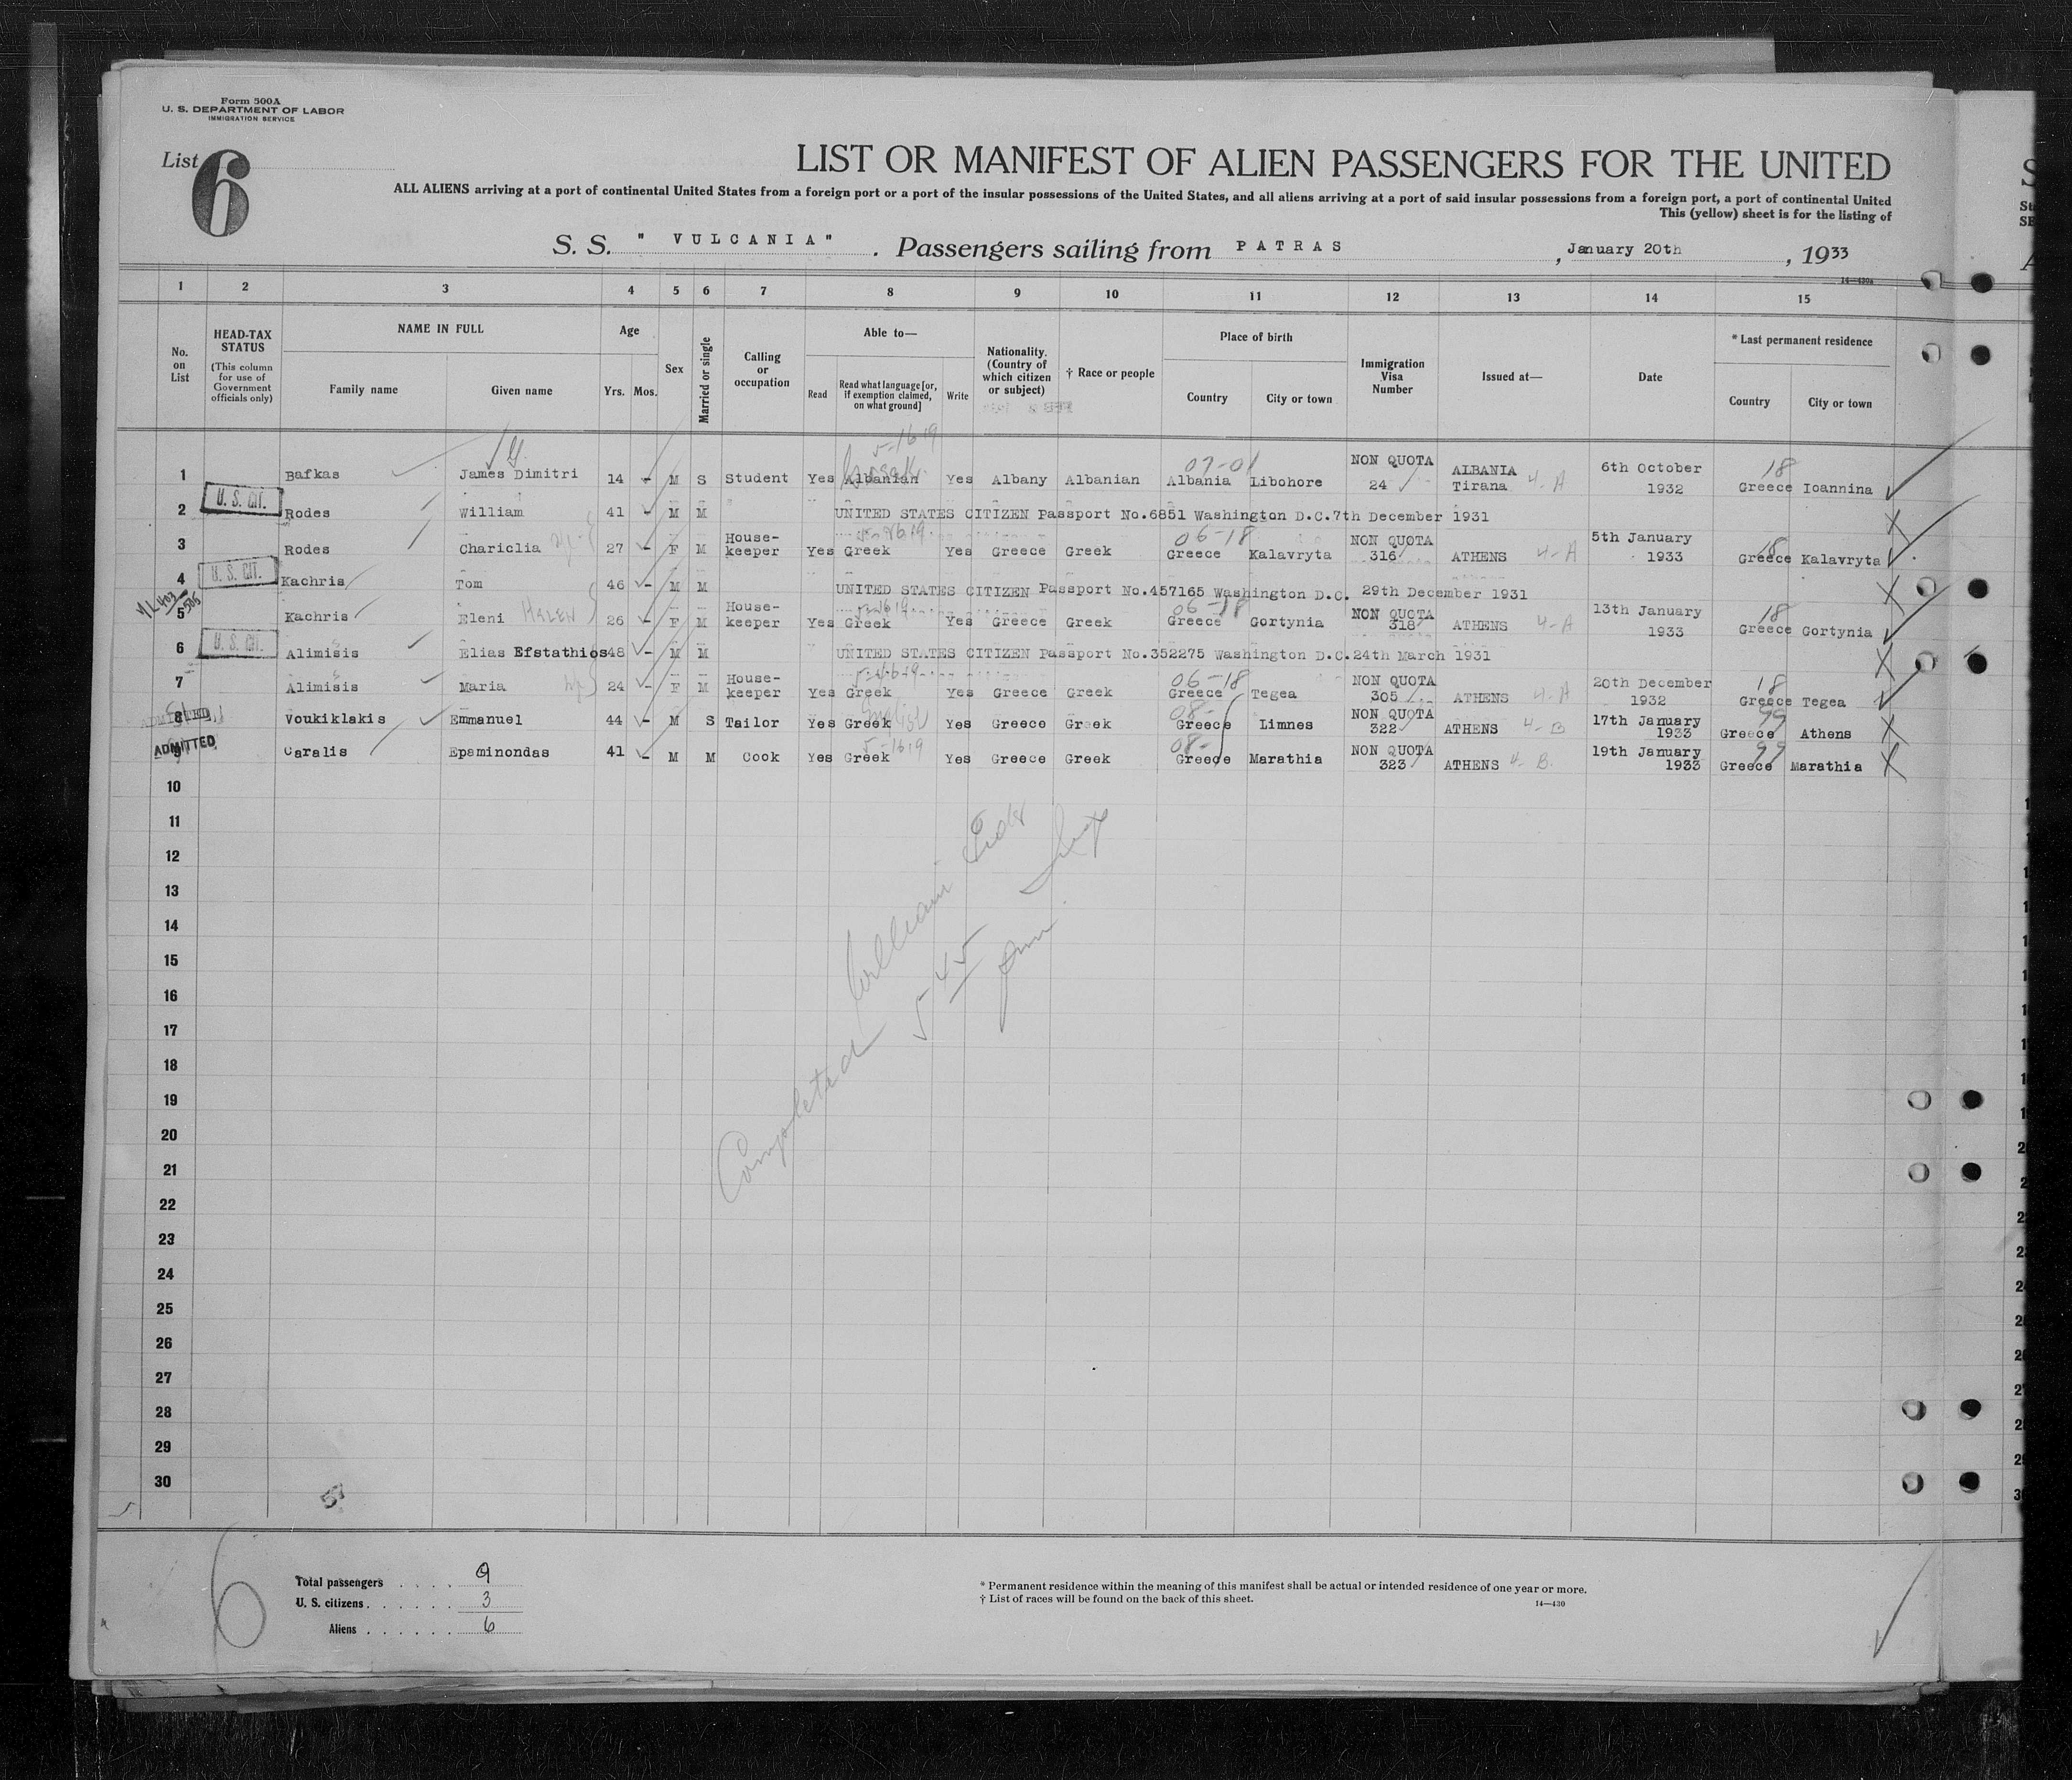 Form 500A
U. S. DEPARTMENT OF LABOR
IMMIGRATION SERVICE
List 6
LIST OR MANIFEST OF ALIEN PASSENGERS FOR THE UNITED
ALL ALIENS arriving at a port of continental United States from a foreign port or a port of the insular possessions of the United States, and all aliens arriving at a port of said insular possessions from a foreign port, a port of continental United
This (yellow) sheet is for the listing of
S. S. " VULCANIA" . Passengers sailing from PATRAS , January 20th , 1933
14—430a
1 2 3 4 5 6 7 8 9 10 11 12 13 14 15
No. on List
HEAD-TAX STATUS
(This column for use of Government officials only)
NAME IN FULL
Family name
Given name
Age
Yrs. Mos.
Sex
Married or single
Calling or occupation
Able to—
Read
Read what language [or, if exemption claimed, on what ground]
Write
Nationality. (Country of which citizen or subject)
† Race or people
Place of birth
Country
City or town
Immigration Visa Number
Issued at—
Date
* Last permanent residence
Country
City or town
1 Bafkas James Dimitri 14 - M S Student Yes Albanian Yes Albany Albanian 07-01 Albania Libohore NON QUOTA 24 ALBANIA Tirana 4-A 6th October 1932 18 Greece Ioannina
2 U. S. CIT. Rodes William 41 - M M UNITED STATES CITIZEN Passport No.6851 Washington D.C.7th December 1931
3 Rodes Chariclia 27 - F M House-keeper Yes Greek Yes Greece Greek 06-18 Greece Kalavryta NON QUOTA 316 ATHENS 4-A 5th January 1933 18 Greece Kalavryta
4 U. S. CIT. Kachris Tom 46 - M M UNITED STATES CITIZEN Passport No.457165 Washington D.C. 29th December 1931
5 Kachris Eleni HELEN 26 - F M House-keeper Yes Greek Yes Greece Greek 06-18 Greece Gortynia NON QUOTA 318 ATHENS 4-A 13th January 1933 18 Greece Gortynia
6 U. S. CIT. Alimisis Elias Efstathios 48 - M M UNITED STATES CITIZEN Passport No.352275 Washington D.C.24th March 1931
7 Alimisis Maria 24 - F M House-keeper Yes Greek Yes Greece Greek 06-18 Greece Tegea NON QUOTA 305 ATHENS 4-A 20th December 1932 18 Greece Tegea
8 ADMITTED Voukiklakis Emmanuel 44 - M S Tailor Yes Greek English Yes Greece Greek 08- Greece Limnes NON QUOTA 322 ATHENS 4-B 17th January 1933 99 Greece Athens
9 ADMITTED Caralis Epaminondas 41 - M M Cook Yes Greek Yes Greece Greek 08- Greece Marathia NON QUOTA 323 ATHENS 4-B. 19th January 1933 99 Greece Marathia
10
11
12
13
14
15
16
17
18
19
20
21
22
23
24
25
26
27
28
29
30
Completed William
5 45
pm
6
Total passengers . . . . 9
U. S. citizens . . . . . . 3
Aliens . . . . . . 6
* Permanent residence within the meaning of this manifest shall be actual or intended residence of one year or more.
† List of races will be found on the back of this sheet.
14—430